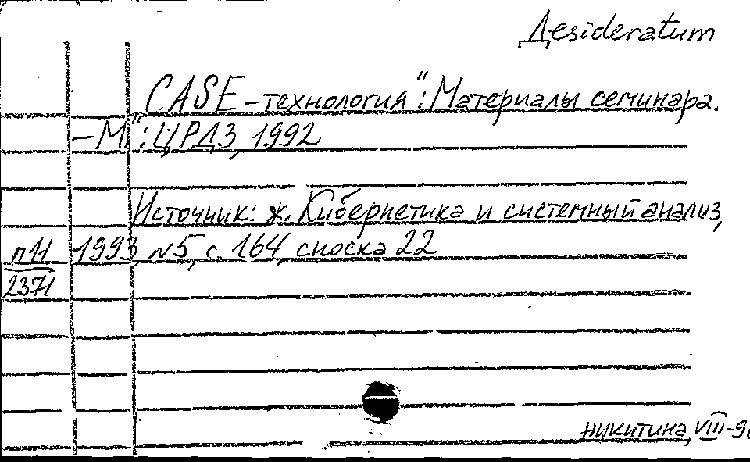 Desideratum
"CASE-технология": Материалы семинара.
-М.: ЦРДЗ, 1992
Источник: ж. Кибернетика и системный анализ,
п11 1993, №5, с. 164, сноска 22
2371
никитина, VIII-